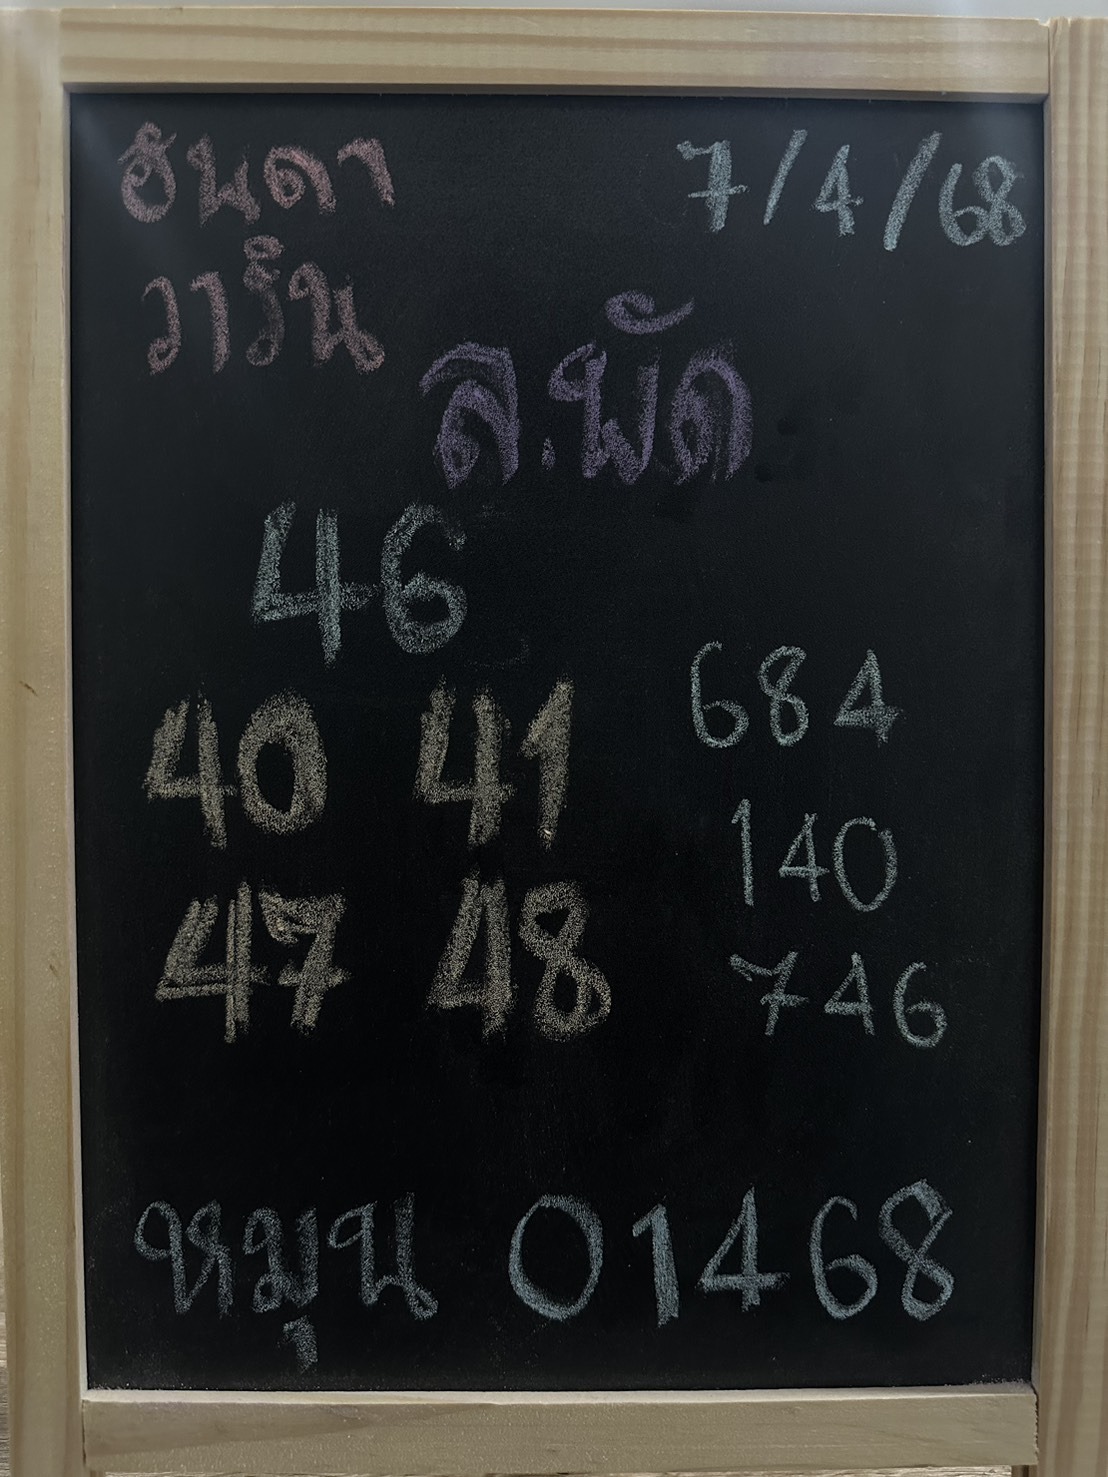 ธนดา 7/4/68
วาริน
ล.พัด
46
40 41 684
140
47 48 746
หมุน 01468